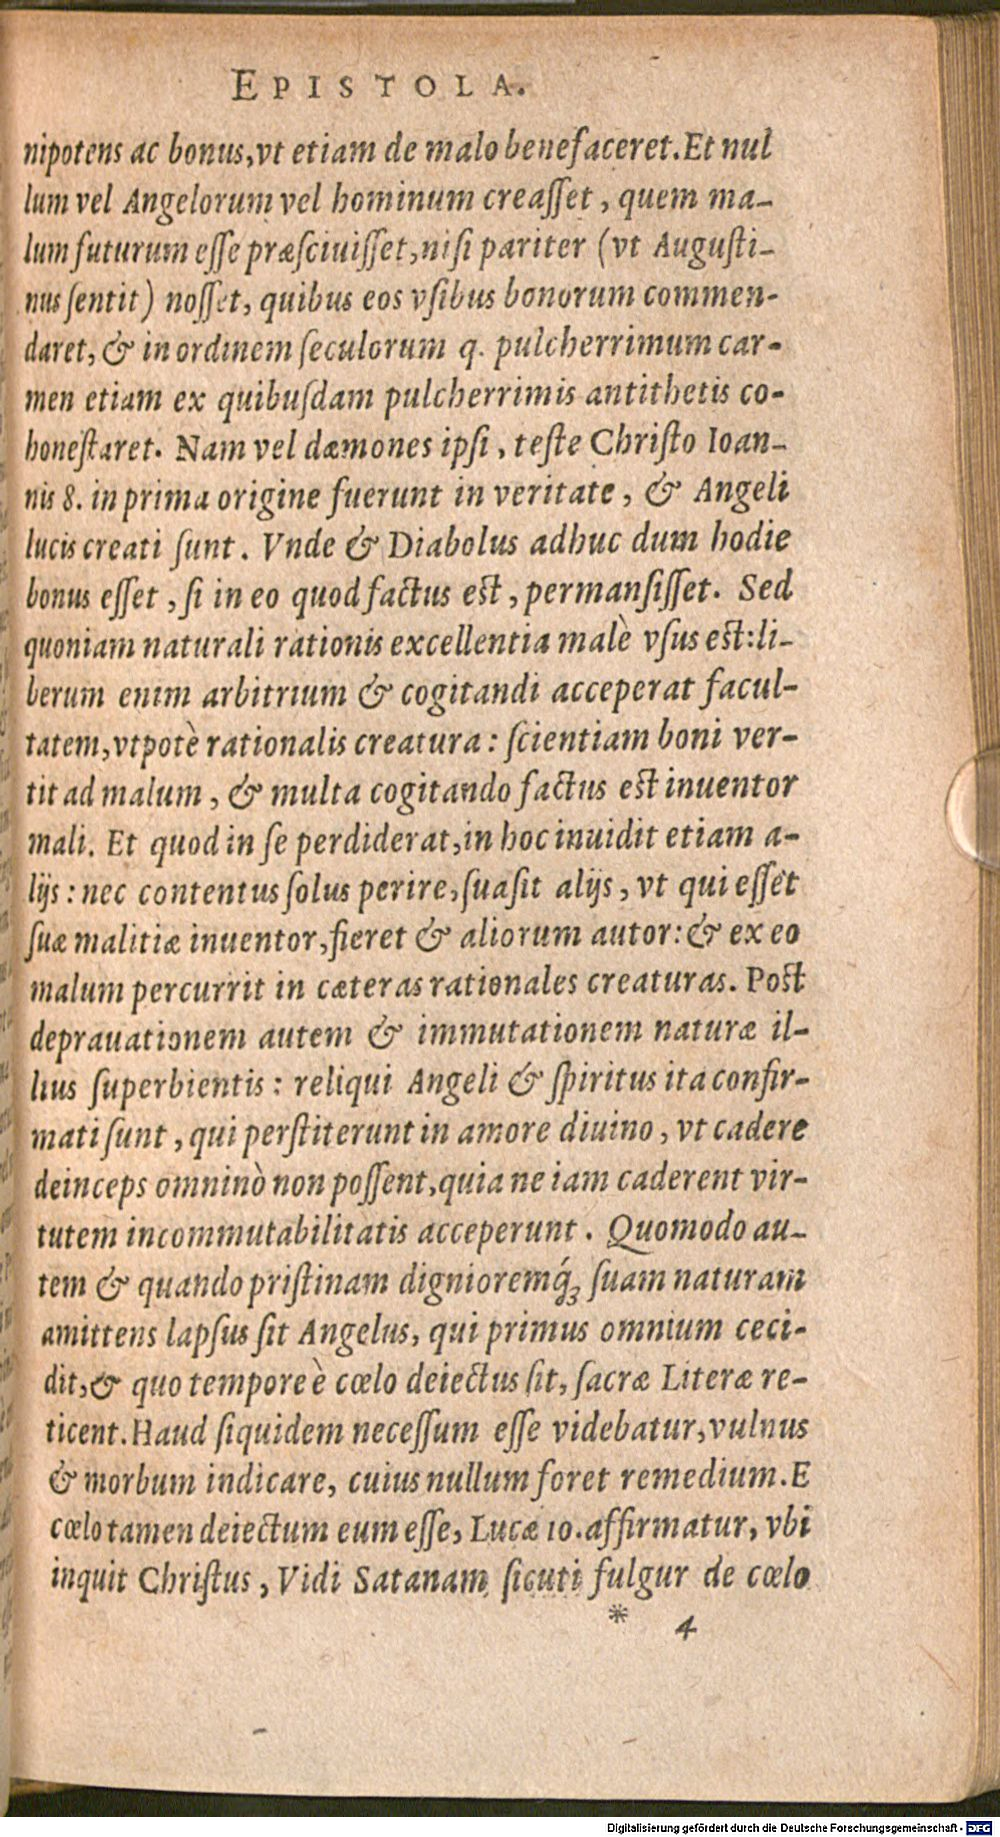 EPISTOLA.
nipotens ac bonus, vt etiam de malo benefaceret. Et nul
lum vel Angelorum vel hominum creaſſet, quem ma-
lum futurum eſſe præſciuiſſet, niſi pariter (vt Auguſti-
nus ſentit) noſſet, quibus eos vſibus bonorum commen-
daret, & in ordinem ſeculorum q. pulcherrimum car-
men etiam ex quibuſdam pulcherrimis antithetis co-
honeſtaret. Nam vel dæmones ipſi, teſte Chriſto Ioan-
nis 8. in prima origine fuerunt in veritate, & Angeli
lucis creati ſunt. Vnde & Diabolus adhuc dum hodie
bonus eſſet, ſi in eo quod factus eſt, permanſiſſet. Sed
quoniam naturali rationis excellentia malè vſus eſt: li-
berum enim arbitrium & cogitandi acceperat facul-
tatem, vtpotè rationalis creatura: ſcientiam boni ver-
tit ad malum, & multa cogitando factus eſt inuentor
mali. Et quod in ſe perdiderat, in hoc inuidit etiam a-
lijs: nec contentus ſolus perire, ſuaſit alijs, vt qui eſſet
ſuæ malitiæ inuentor, fieret & aliorum autor: & ex eo
malum percurrit in cæteras rationales creaturas. Poſt
deprauationem autem & immutationem naturæ il-
lius ſuperbientis: reliqui Angeli & ſpiritus ita confir-
mati ſunt, qui perſtiterunt in amore diuino, vt cadere
deinceps omninò non poſſent, quia ne iam caderent vir-
tutem incommutabilitatis acceperunt. Quomodo au-
tem & quando priſtinam dignioremq́ꝫ ſuam naturam
amittens lapſus ſit Angelus, qui primus omnium ceci-
dit, & quo tempore è cœlo deiectus ſit, ſacræ Literæ re-
ticent. Haud ſiquidem neceſſum eſſe videbatur, vulnus
& morbum indicare, cuius nullum foret remedium. E
cœlo tamen deiectum eum eſſe, Lucæ 10. affirmatur, vbi
inquit Chriſtus, Vidi Satanam ſicuti fulgur de cœlo
* 4
Digitalisierung gefördert durch die Deutsche Forschungsgemeinschaft - DFG